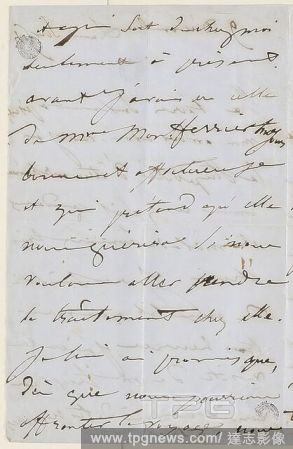 seulement à présent.
avant j'avais eu celle
de Mme More Ferrier
bonne et affectueuse
et qui prétend qu'elle
nous guérira si nous
voulons aller prendre
le traitement chez elle.
Je lui ai promis que,
dès que nous pourrons
affronter le voyage nous
TPG
www.tpgnews.com / 達志影像